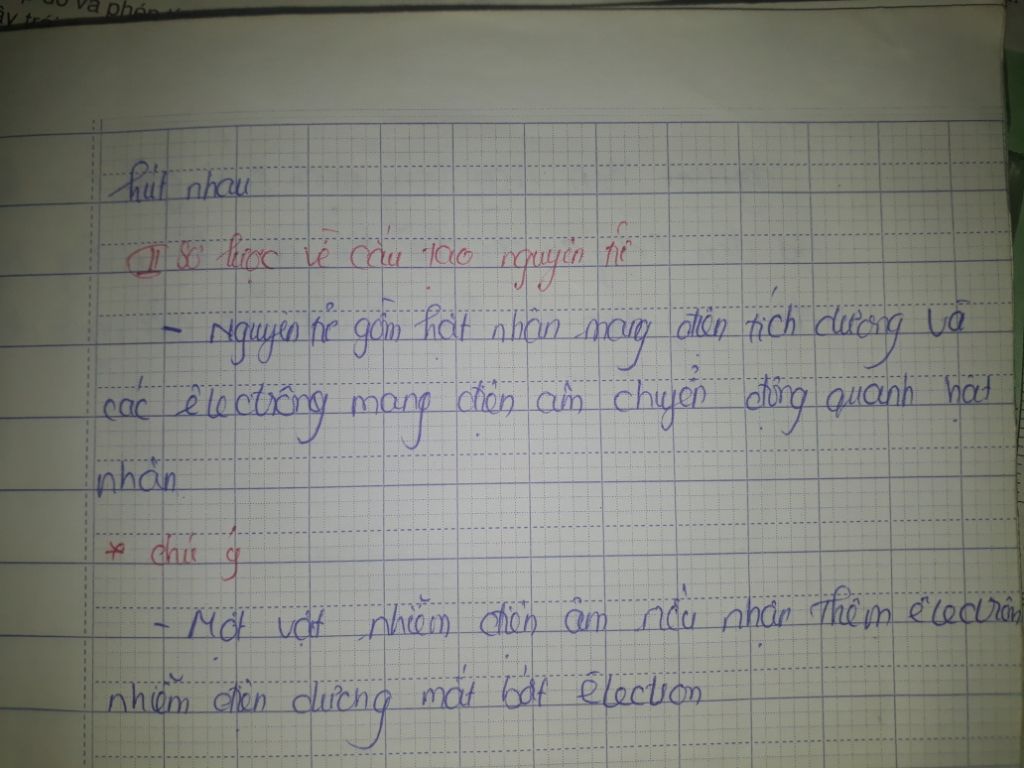 số và phép
hút nhau
II Sơ lược về cấu tạo nguyên tử
- Nguyên tử gồm hạt nhân mang điện tích dương và
các êlectrông mang điện âm chuyển động quanh hạt
nhân
* chú ý
- Một vật nhiễm điện âm nếu nhận thêm êlectrôn
nhiễm điện dương mất bớt êlectron